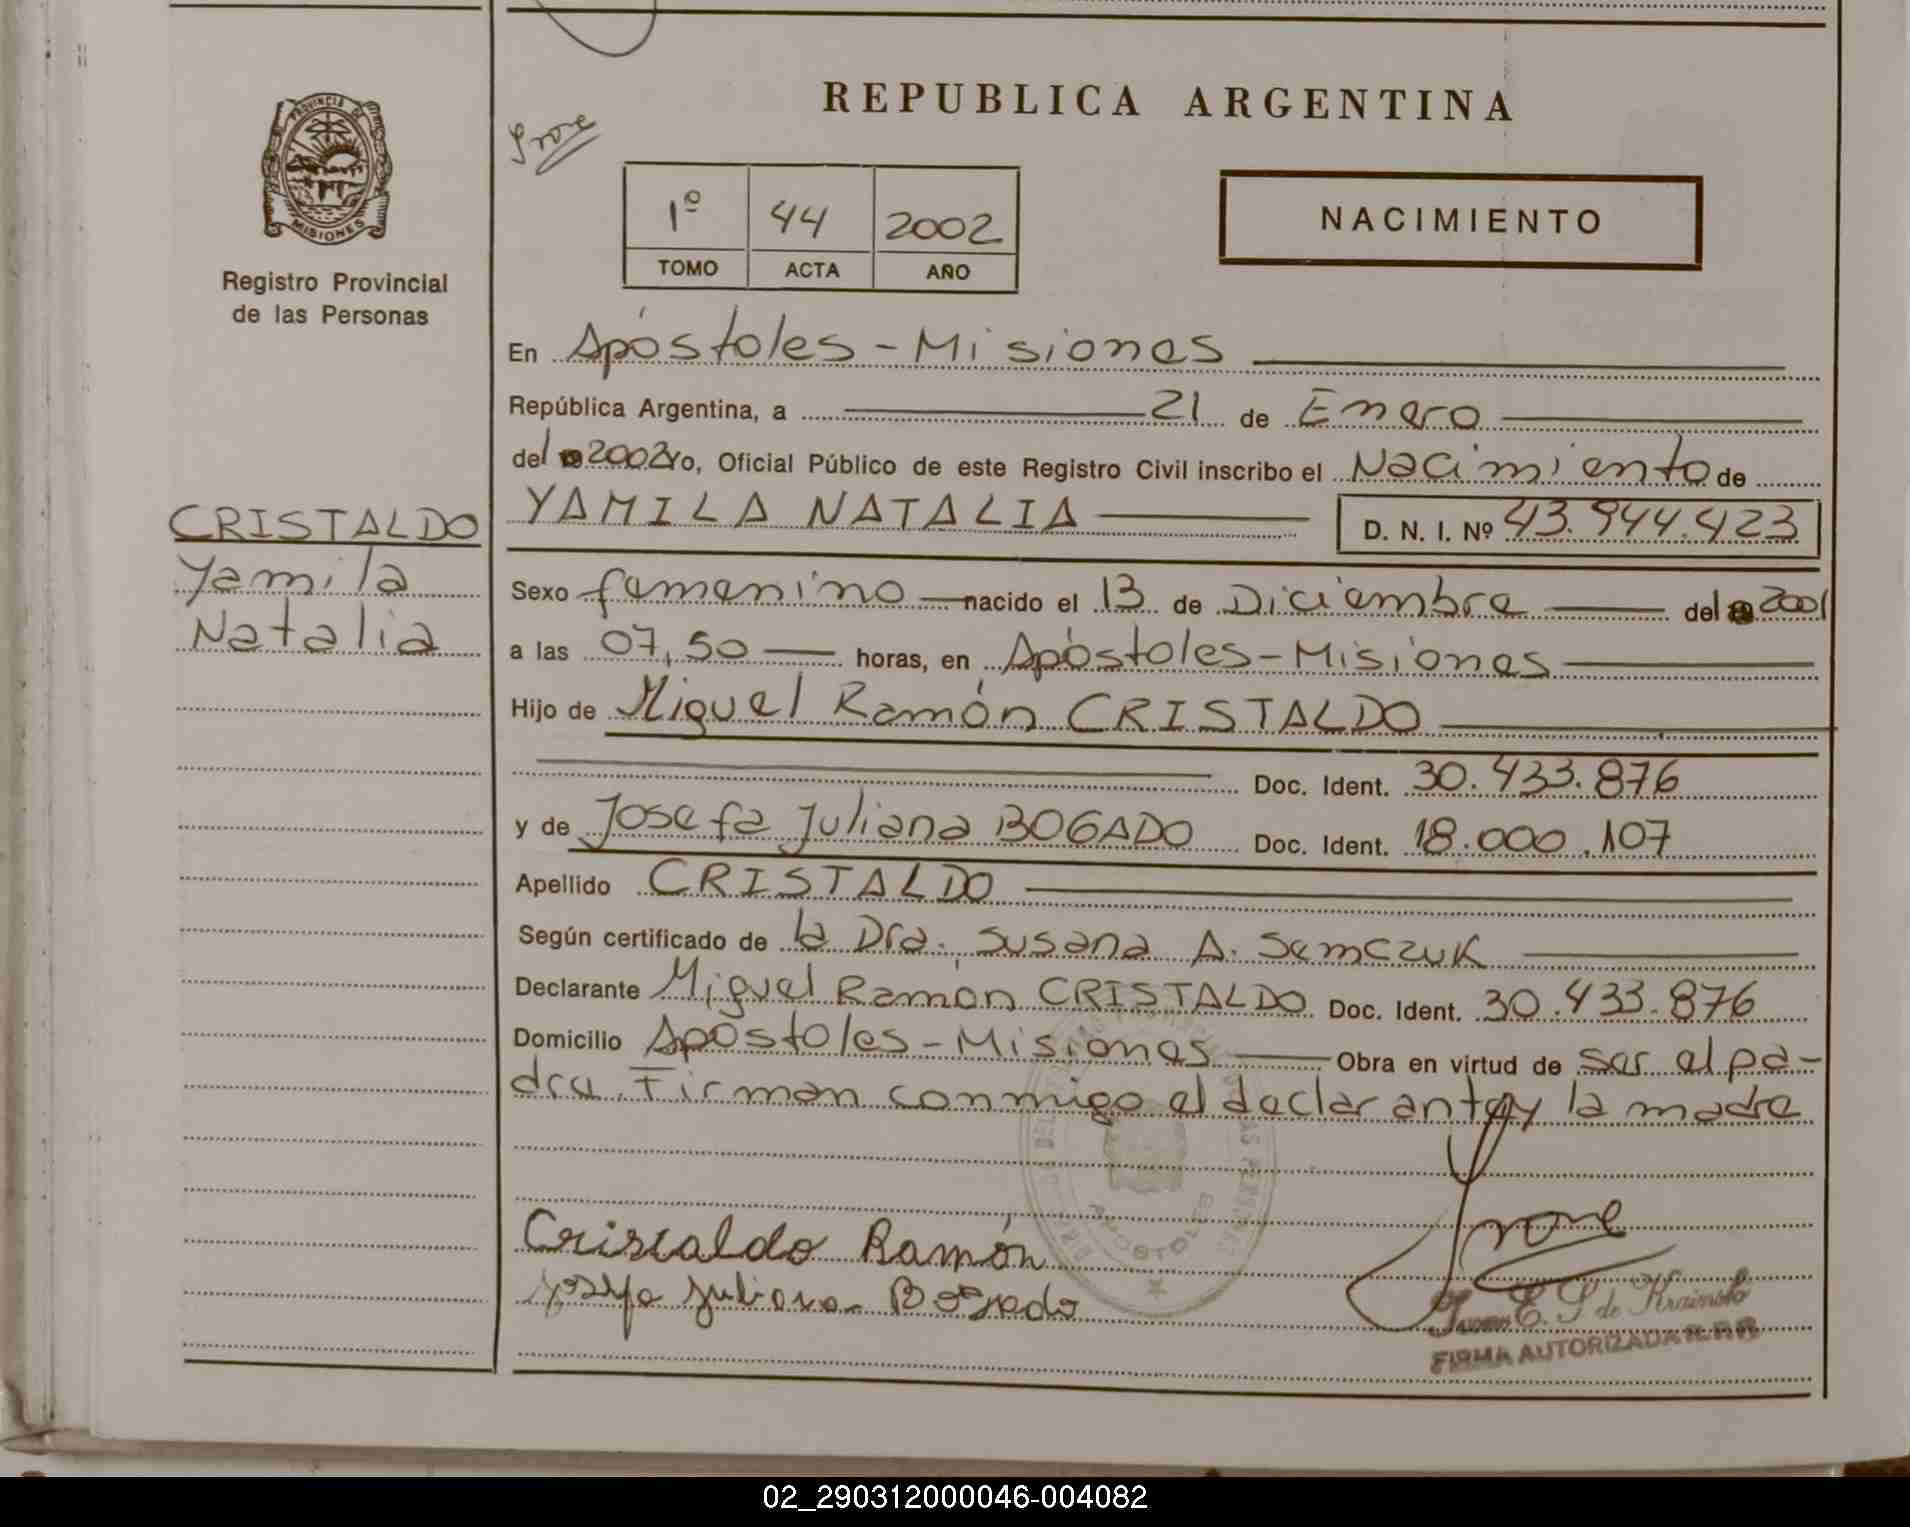 PROVINCIA DE
MISIONES
Registro Provincial
de las Personas
CRISTALDO
Yamila
Natalia
REPUBLICA ARGENTINA
1º 44 2002
TOMO ACTA AÑO
NACIMIENTO
En Apóstoles - Misiones
República Argentina, a 21 de Enero
del 2002 Yo, Oficial Público de este Registro Civil inscribo el Nacimiento de
YAMILA NATALIA D. N. I. Nº 43.944.423
Sexo femenino nacido el 13 de Diciembre del 2001
a las 07,50 horas, en Apóstoles - Misiones
Hijo de Miguel Ramón CRISTALDO
Doc. Ident. 30.433.876
y de Josefa Juliana BOGADO Doc. Ident. 18.000.107
Apellido CRISTALDO
Según certificado de la Dra. Susana A. Semczuk
Declarante Miguel Ramón CRISTALDO Doc. Ident. 30.433.876
Domicilio Apóstoles - Misiones Obra en virtud de ser el pa-
dre. Firman conmigo el declarante y la madre
APOSTOLES
Cristaldo Ramón
Josefa Juliana Bogado
E. S. de
FIRMA AUTORIZADA R.P.P.
02_290312000046-004082